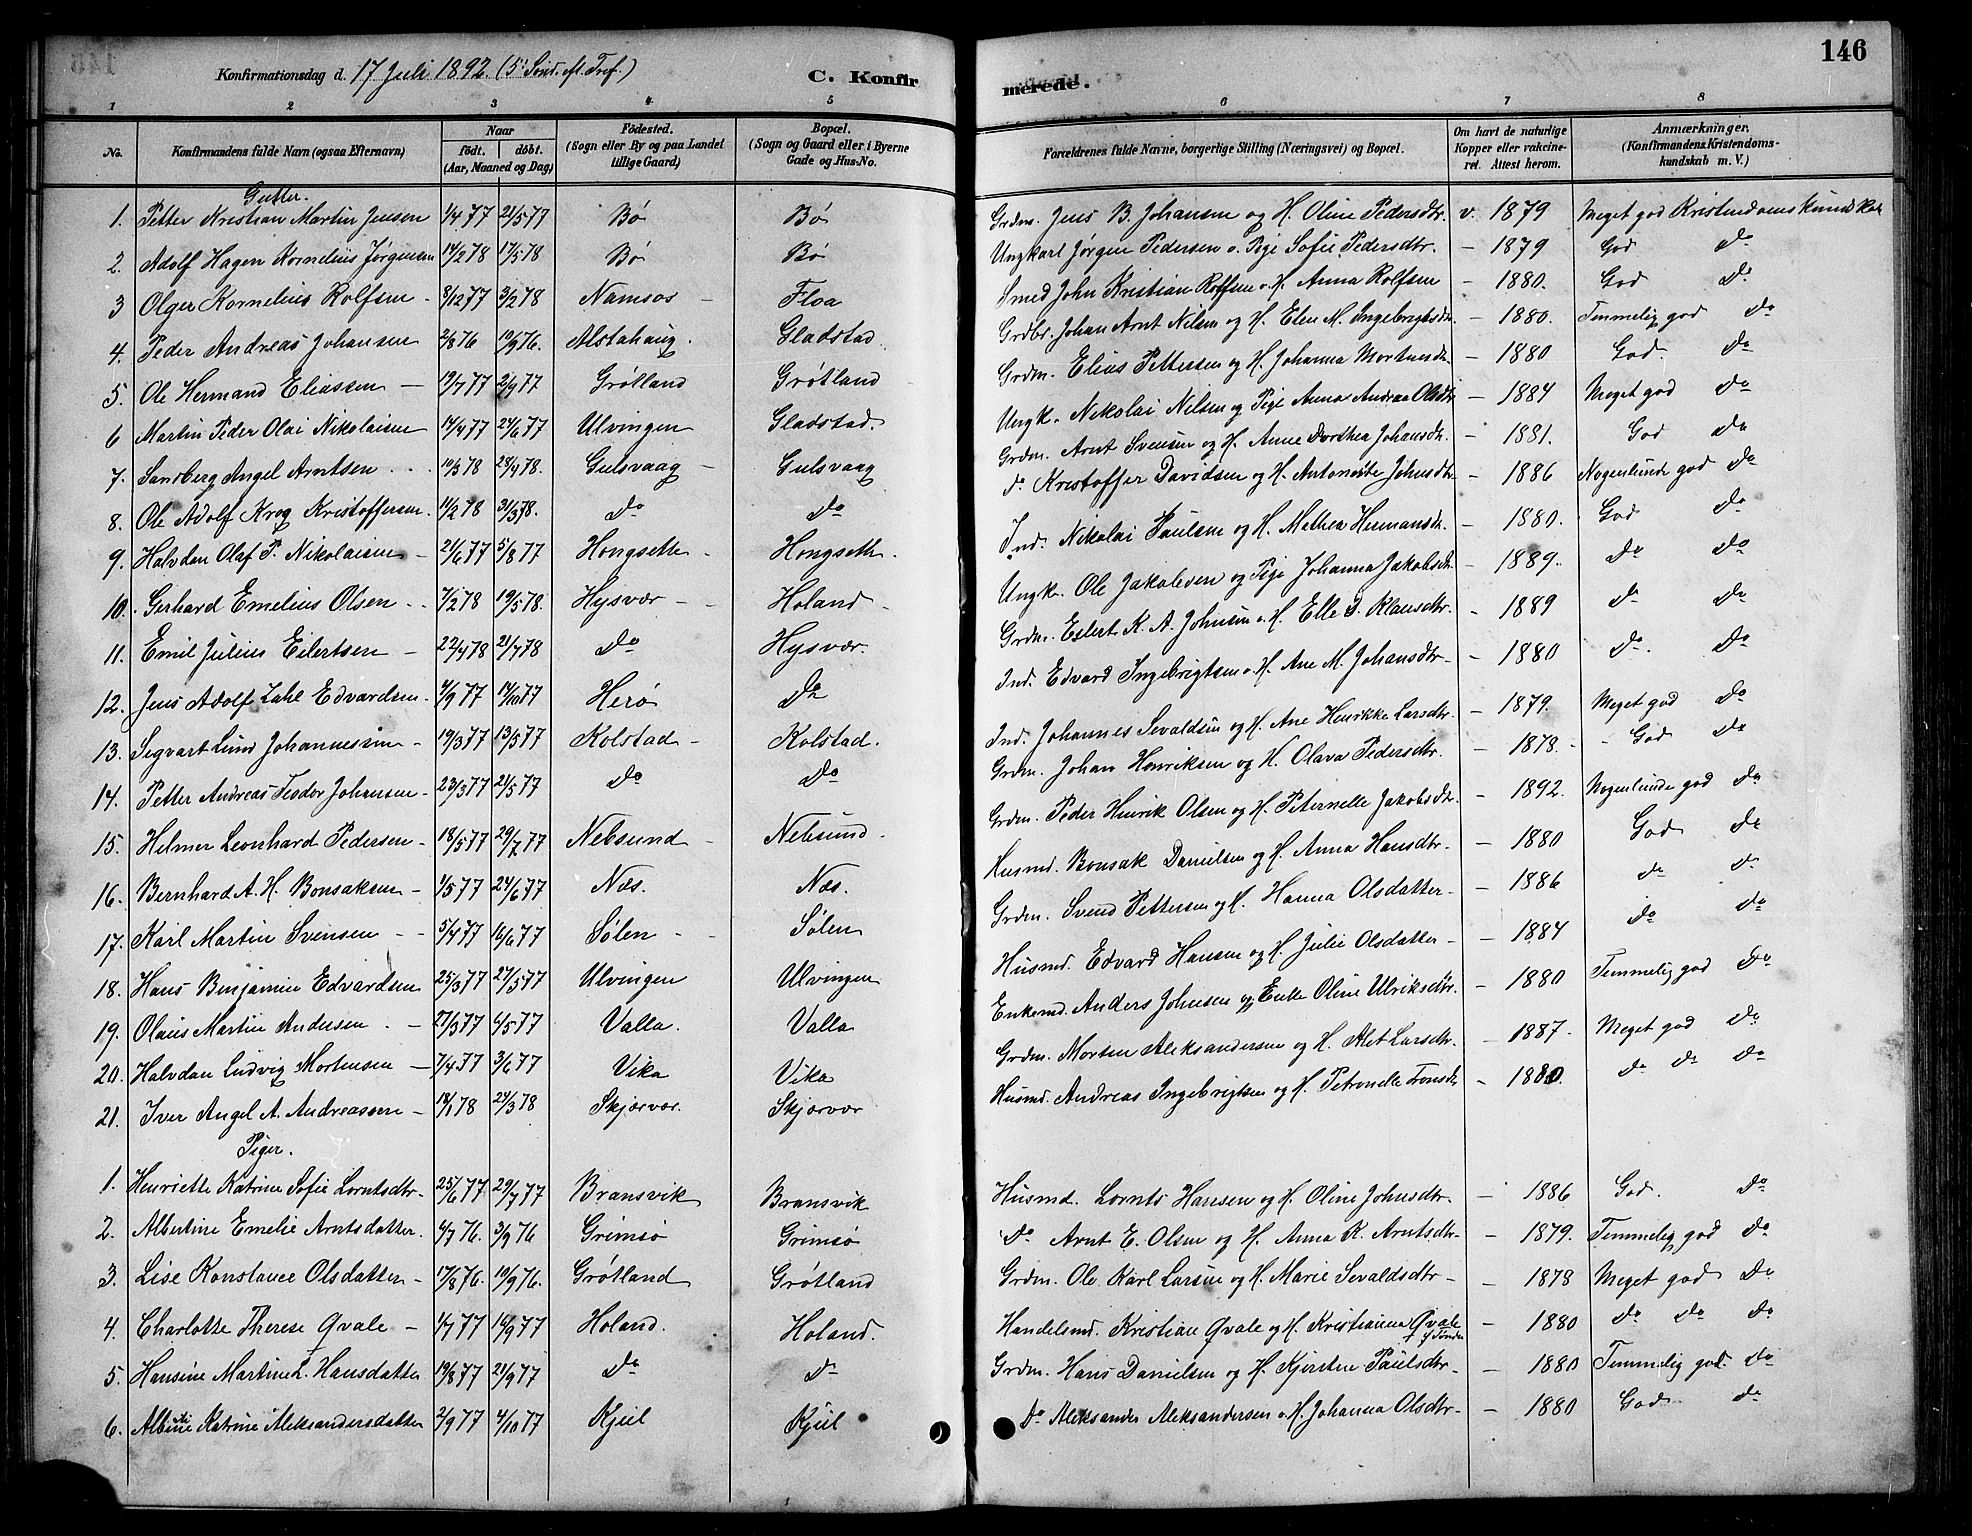 146
Konfirmationsdag d. 17 Juli 1892. (5' Sønd. ef. Tref.)
C. Konfirmerede.
1 2 3 4 5 6 7 8
No. Konfirmandens fulde Navn (ogsaa Efternavn) Naar født. døbt. (Aar, Maaned og Dag) Fødested. (Sogn eller By og paa Landet tillige Gaard) Bopæl. (Sogn og Gaard eller i Byerne Gade og Hus-No. Forældrenes fulde Navne, borgerlige Stilling (Næringsvei) og Bopæl. Om havt de naturlige Kopper eller vakcineret. Attest herom. Anmærkninger. (Konfirmandens Kristendomskundskab m. V.)
Gutter.
1. Petter Kristian Martin Jensen 1/4 77 21/5 77 Bø Bø Grdm. Jens B. Johansen og H. Oline Pedersdtr. v. 1879 Meget god Kristendomskundskab
2. Adolf Hagen Kornelius Jørgensen 14/2 78 17/5 78 Bø Bø Ungkarl Jørgen Pedersen o. Pige Sofie Pedersdtr. – 1879 God do
3 Olger Kornelius Rolfsen – 8/12 77 3/2 78 Namsos – Floa Smed John Kristian Rolfsen o. H. Anna Rolfsen – 1880. God do
4. Peder Andreas Johansen 2/8 76 19/9 76. Alstahaug. Gladstad Grdbr. Johan Arnt Nilsen og H. Elen M. Ingebrigtsdtr. – 1880. Temmelig god do
5. Ole Hermand Eliassen – 19/7 77 2/9 77 Grøtland Grøtland Grdm. Elias Pettersen og H. Johanna Mortensdtr. – 1880 God. do
6 Martin Peder Olai Nikolaisen 14/4 77 24/6 77 Ulvingen Gladstad. Ungk. Nikolai Nilsen og Pige Anna Andrea Olsdtr – 1884 Meget god do
7. Sandberg Angel Arntsen 10/3 78 28/4 78. Gulsvaag – Gulsvaag Grdm. Arnt Svensen og H. Anne Dorthea Johansdtr. – 1881. God do
8. Ole Adolf Krog Kristoffersen. 11/2 78 31/3 78. do do do Kristoffer Davidsen og H. Antonette Johnsdtr – 1886 Nogenlunde god do
9. Halvdan Olaf P. Nikolaisen – 21/6 77 5/8 77 Hongseth – Hongseth. Ind. Nikolai Paulsen og H. Methea Hermansdtr. – 1880. God do
10. Gerhard Emelius Olsen 7/2 78 19/5 78. Hysvær – Holand – Ungk. Ole Jakobsen og Pige Johanna Jakobsdtr – 1889. do do
11. Emil Julius Eilertsen – 22/4 78 21/7 78 do Hysvær. Grdm. Eilert K. A. Johnsen o. H. Elle D. Klausdtr. – 1889 do do
12. Jens Adolf Zahl Edvardsen. 4/9 77 14/10 77 Herø do Ind. Edvard Ingebrigtsen o. H. Ane M. Johansdtr – 1880 do do
13. Segvart Lund Johannessen – 19/3 77 13/5 77 Kolstad – Kolstad. Ind. Johannes Sevaldsen og H. Ane Henrikke Larsdtr. – 1879. Meget god do
14. Petter Andreas Teodor Johansen – 23/3 77 21/5 77 do do Grdm. Johan Henriksen og H. Olava Pedersdtr. – 1878. God do
15. Helmer Leonhard Pedersen – 18/5 77 29/7 77 Nebsund – Nebsund. Grdm. Peder Henrik Olsen og H. Peternelle Jakobsdtr. – 1892. Nogenlunde god do
16. Bernhard A. H. Bonsaksen – 1/5 77 24/6 77 Næs. Næs. Husmd. Bonsak Danielsen og H. Anna Hansdtr. – 1880 God do
17. Karl Martin Svensen – 5/4 77 16/6 77 Sølen – Sølen Grdm. Svend Pettersen og H. Hanna Olsdatter – 1886 do do
18. Hans Benjamin Edvardsen 25/3 77 27/5 77 Ulvingen Ulvingen Husmd. Edvard Hansen og H. Julie Olsdatter – – 1884 do do
19. Olaus Martin Andersen – 27/3 77 4/5 77 Valla. Valla Enkemd. Anders Johnsen og Enke Oline Ulriksdtr. – 1880 Temmelig god do
20. Halvdan Ludvig Mortensen – 7/4 77 3/6 77 Vika Vika Grdm. Morten Aleksandersen og H. Alet Larsdtr. – 1887. Meget god do
21. Iver Angel A. Andreassen – 18/1 78 24/3 78 Skjærvær. Skjærvær Husmd. Andreas Ingebrigtsen og H. Petronelle Tronsdtr – 1880. do do do
Piger.
1. Henriette Katrine Sofie Lorntsdtr – 25/6 77 29/7 77 Bransvik Bransvik Husmd. Lornts Hansen og H. Oline Johnsdtr. – 1886 God. do
2. Albertine Emelie Arntsdatter. 4/7 76. 3/9 76 Grimsø Grimsø do Arnt E. Olsen og H. Anna K. Arntsdtr – – 1879. Temmelig god do
3. Lise Konstance Olsdatter – 17/8 76. 10/9 76. Grøtland Grøtland Grdm. Ole Karl Larsen og H. Marie Sevaldsdtr – – 1878 Meget god do
4. Charlotte Therese Qvale – 1/7 77 18/9 77 Holand. Holand. Handelsmd. Kristian Qvale og H. Kristianna Qvale – 1880 do do do
5. Hansine Martine L. Hansdatter 19/8 77 21/9 77 do do Grdm. Hans Danielsen og H. Kjersten Paulsdtr – – 1880 Temmelig god do
6. Albine Katrine Aleksandersdatter 2/9 77 4/10 77 Kjul Kjul do Aleksander Aleksandersen o. H. Johanna Olsdtr – – 1880 God do